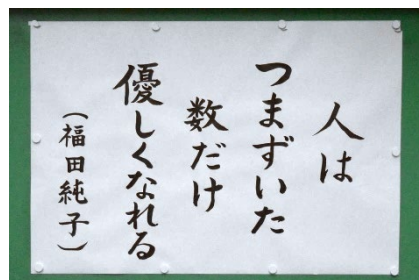 人は
つまずいた
数だけ
優しくなれる
（福田純子）